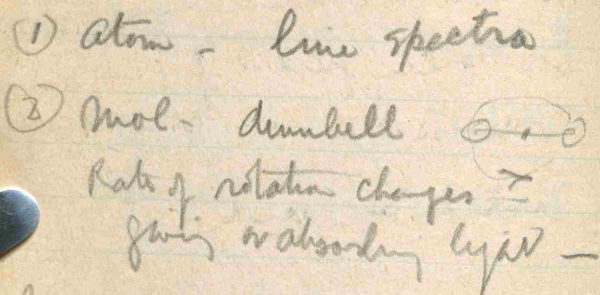 ① Atom - line spectra
② Mol - dumbbell
Rate of rotation changes
giving or absorbing light —